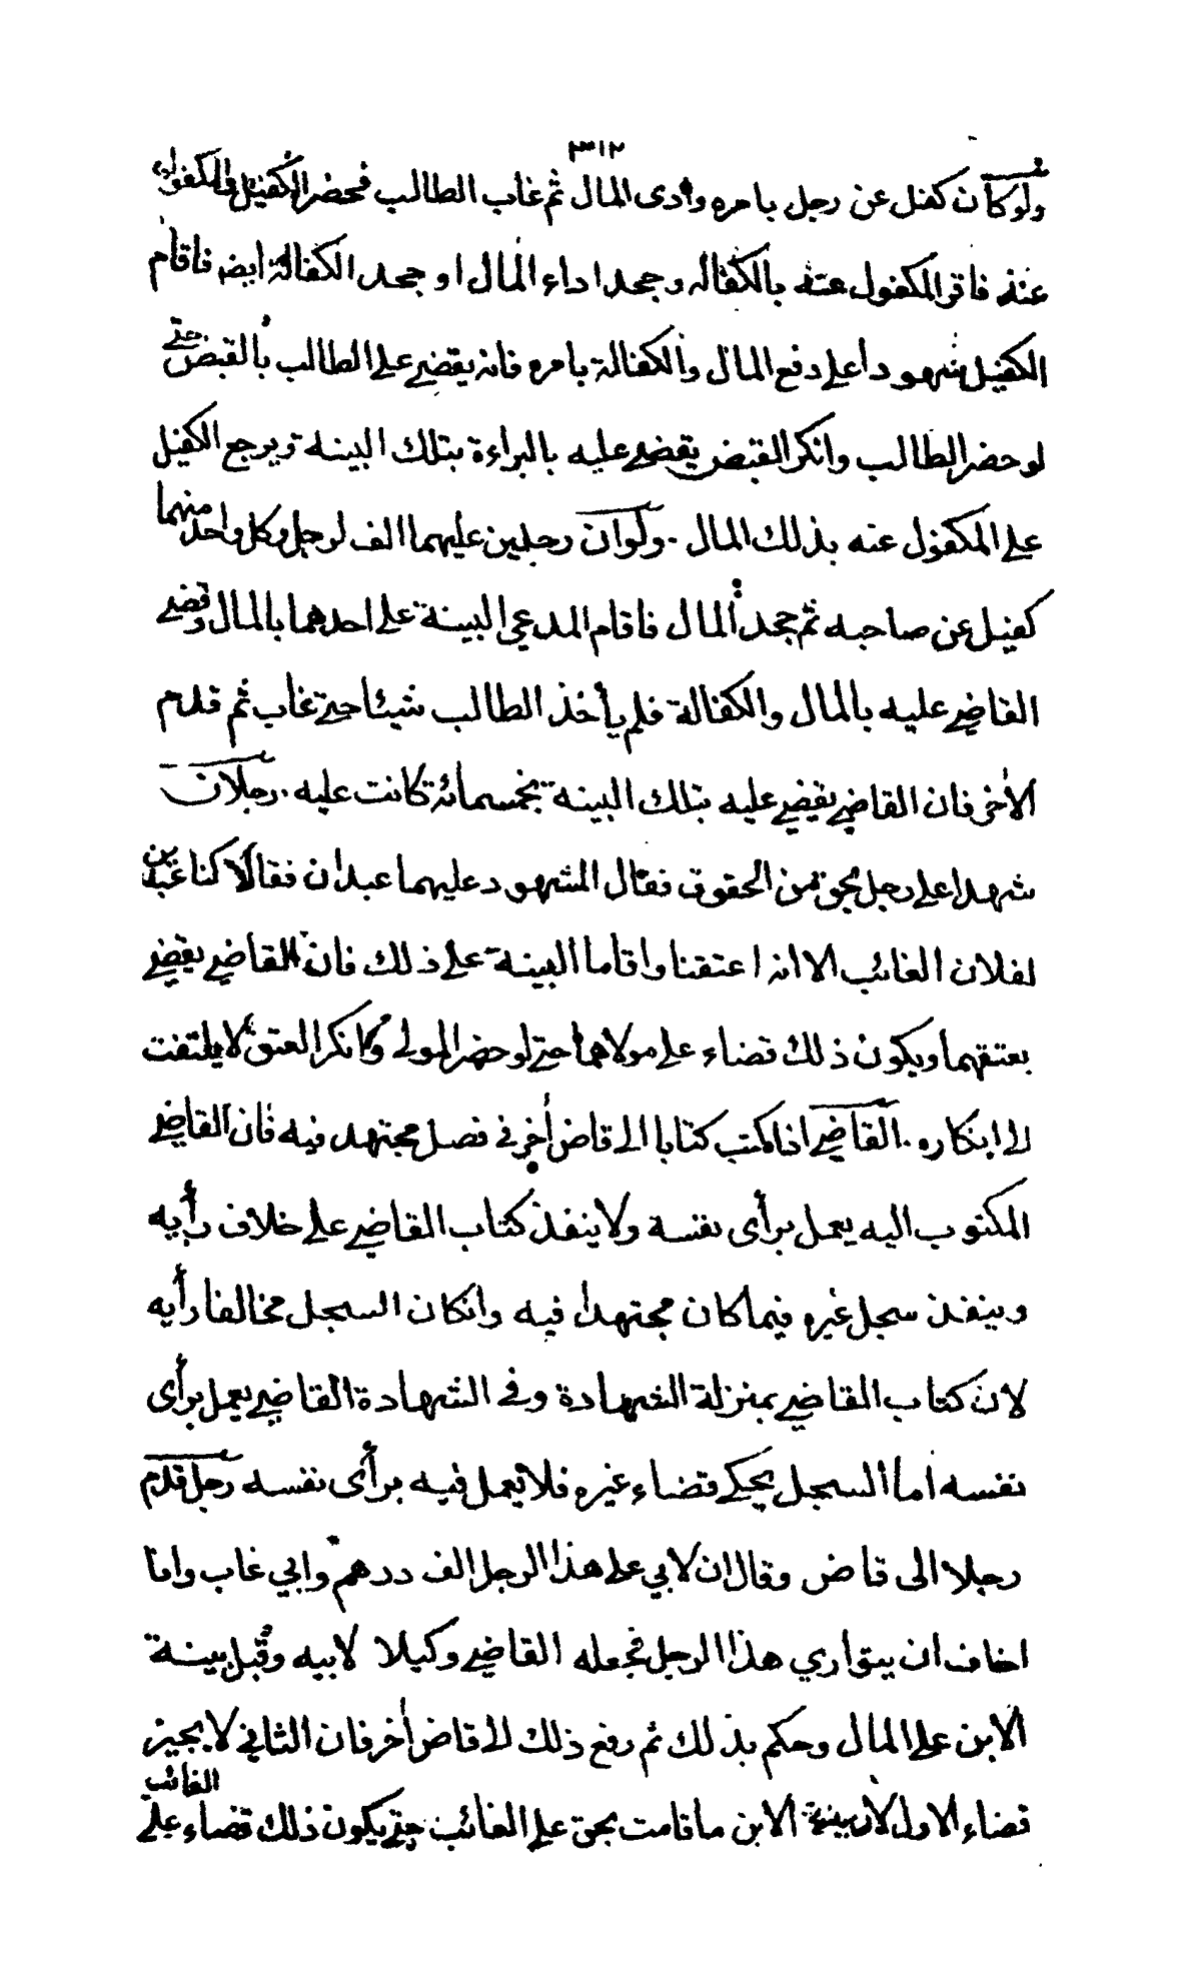 ٣١٢
ولو كان كفل عن رجل بامره وادى المال ثم غاب الطالب فحضر الكفيل والمكفول
عنه فاقر المكفول عنه بالكفاله وجحد اداء المال او جحد الكفالة ايضه فاقام
الكفيل شهودا على دفع المال والكفالة بامره فانه يقضي على الطالب بالقبض حتى
لو حضر الطالب وانكر القبض يقضي عليه بالبراءة بتلك البينة ويرجع الكفيل
على المكفول عنه بذلك المال . ولو ان رجلين عليهما الف لرجل وكل واحد منهما
كفيل عن صاحبه ثم جحد المال فاقام المدعي البينة على احدهما بالمال وقضى
القاضي عليه بالمال والكفالة فلم يأخذ الطالب شيئا حتى غاب ثم قدم
الاخر فان القاضي يقضي عليه بتلك البينة بخمسمائة كانت عليه . رجلان
شهدا على رجل بحق من الحقوق فقال المشهود عليهما عبدان فقالا كنا عبدين
لفلان الغائب الا انه اعتقنا واقاما البينة على ذلك فان القاضي يقضي
بعتقهما ويكون ذلك قضاء على مولاهما حتى لو حضر المولى وانكر العتق لا يلتفت
الى انكاره . القاضي اذا كتب كتابا الى قاض أخر في فصل مجتهد فيه فان القاضي
المكتوب اليه يعمل برأى نفسه ولا ينفذ كتاب القاضي على خلاف رأيه
وينفذ سجل غيره فيما كان مجتهدا فيه وانكان السجل مخالفا رأيه
لان كتاب القاضي بمنزلة الشهادة وفي الشهادة القاضي يعمل برأى
نفسه اما السجل يحكي قضاء غيره فلا يعمل فيه برأى نفسه رجل قدم
رجلا الى قاض وقال ان لابي على هذا الرجل الف درهم وابي غاب وانا
اخاف ان يتوارى هذا الرجل فجعله القاضي وكيلا لابيه وقبل بينة
الابن على المال وحكم بذلك ثم رفع ذلك الى قاض أخر فان الثاني لا يجيز
قضاء الاول لان بينة الابن ما قامت بحق على الغائب حتى يكون ذلك قضاء على
الغائب